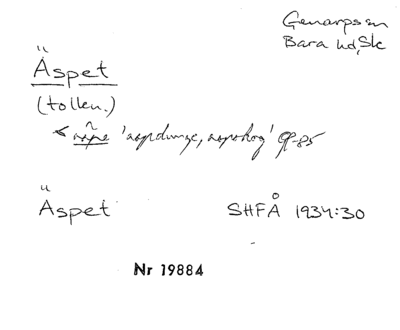 Genarps sn
Bara hd, Sk
Äspet
(tolkn.)
< äspe 'aspdunge, aspskog' GP-85
Äspet SHFÅ 1934:30
Nr 19884